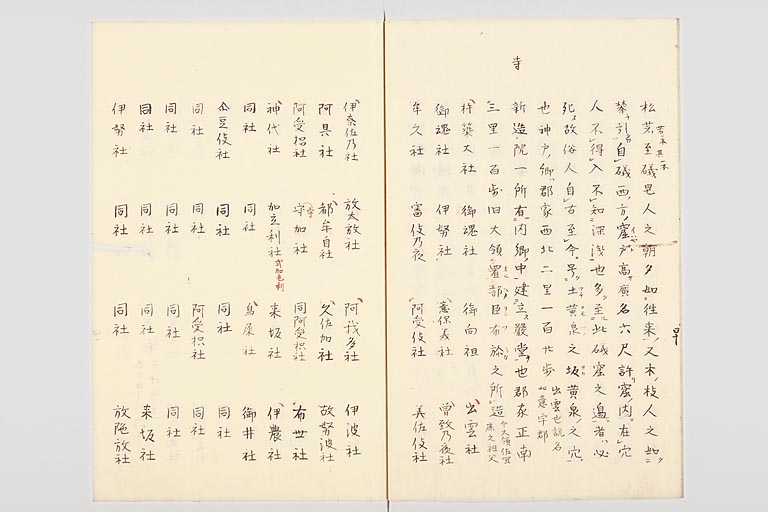 寺
松芝至礒邑人之朝夕如往来又木枝人之如
攀引自礒西方窟戸高廣各六尺許窟内在穴
人不得入不知深浅也夢至此礒窟之邊者必
死故俗人自古至今号土黄泉之坂黄泉之穴
也神戸郡家西北二里一百廿歩
出雲也説名
如意宇郡
新造院一所有内郷中建立厳堂也郡家正南
三里一百歩旧大領置部臣布於之所造
今大領佐宜
床之祖父
杵築大社 御魂社 御向祖 出雲社
御魂社 伊努社 意保美社 曽致乃夜社
牟久社 審伎乃夜 阿受伎社 美佐伎社
伊奈佐乃社 放太放社 阿我多社 伊波社
阿具社 都牟自社 久佐加社 故努波社
阿受枳社 守加社 同阿受枳社 布世社
神代社 加立利社 来坂社 伊農社
同社 同社 鳥屎社 御井社
企豆伎社 同社 同社 同社
同社 同社 阿受枳社 同社
同社 同社 同社 同社
同社 同社 同社 来坂社
伊努社 同社 同社 放陁放社